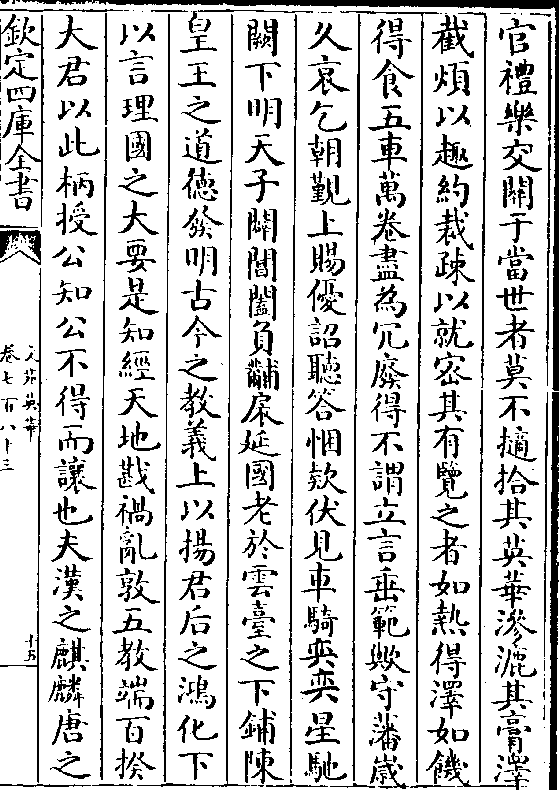 官禮樂交關于當世者莫不擿拾其英華滲漉其膏澤
截煩以趣約裁疎以就密其有覽之者如熱得濯如饑
得食五車萬卷盡為冗廢得不謂立言垂範歟守藩歲
久哀乞朝覲上賜優詔聽答悃欵伏見車騎奕奕星馳
闕下明天子闢閶闔負黼扆延國老於雲臺之下鋪陳
皇王之道德發明古今之教義上以揚君后之鴻化下
以言理國之大要是知經天地戡禍亂敦五教端百揆
大君以此柄授公知公不得而讓也夫漢之麒麟唐之
欽定四庫全書
文苑英華
卷七百八十三
十五